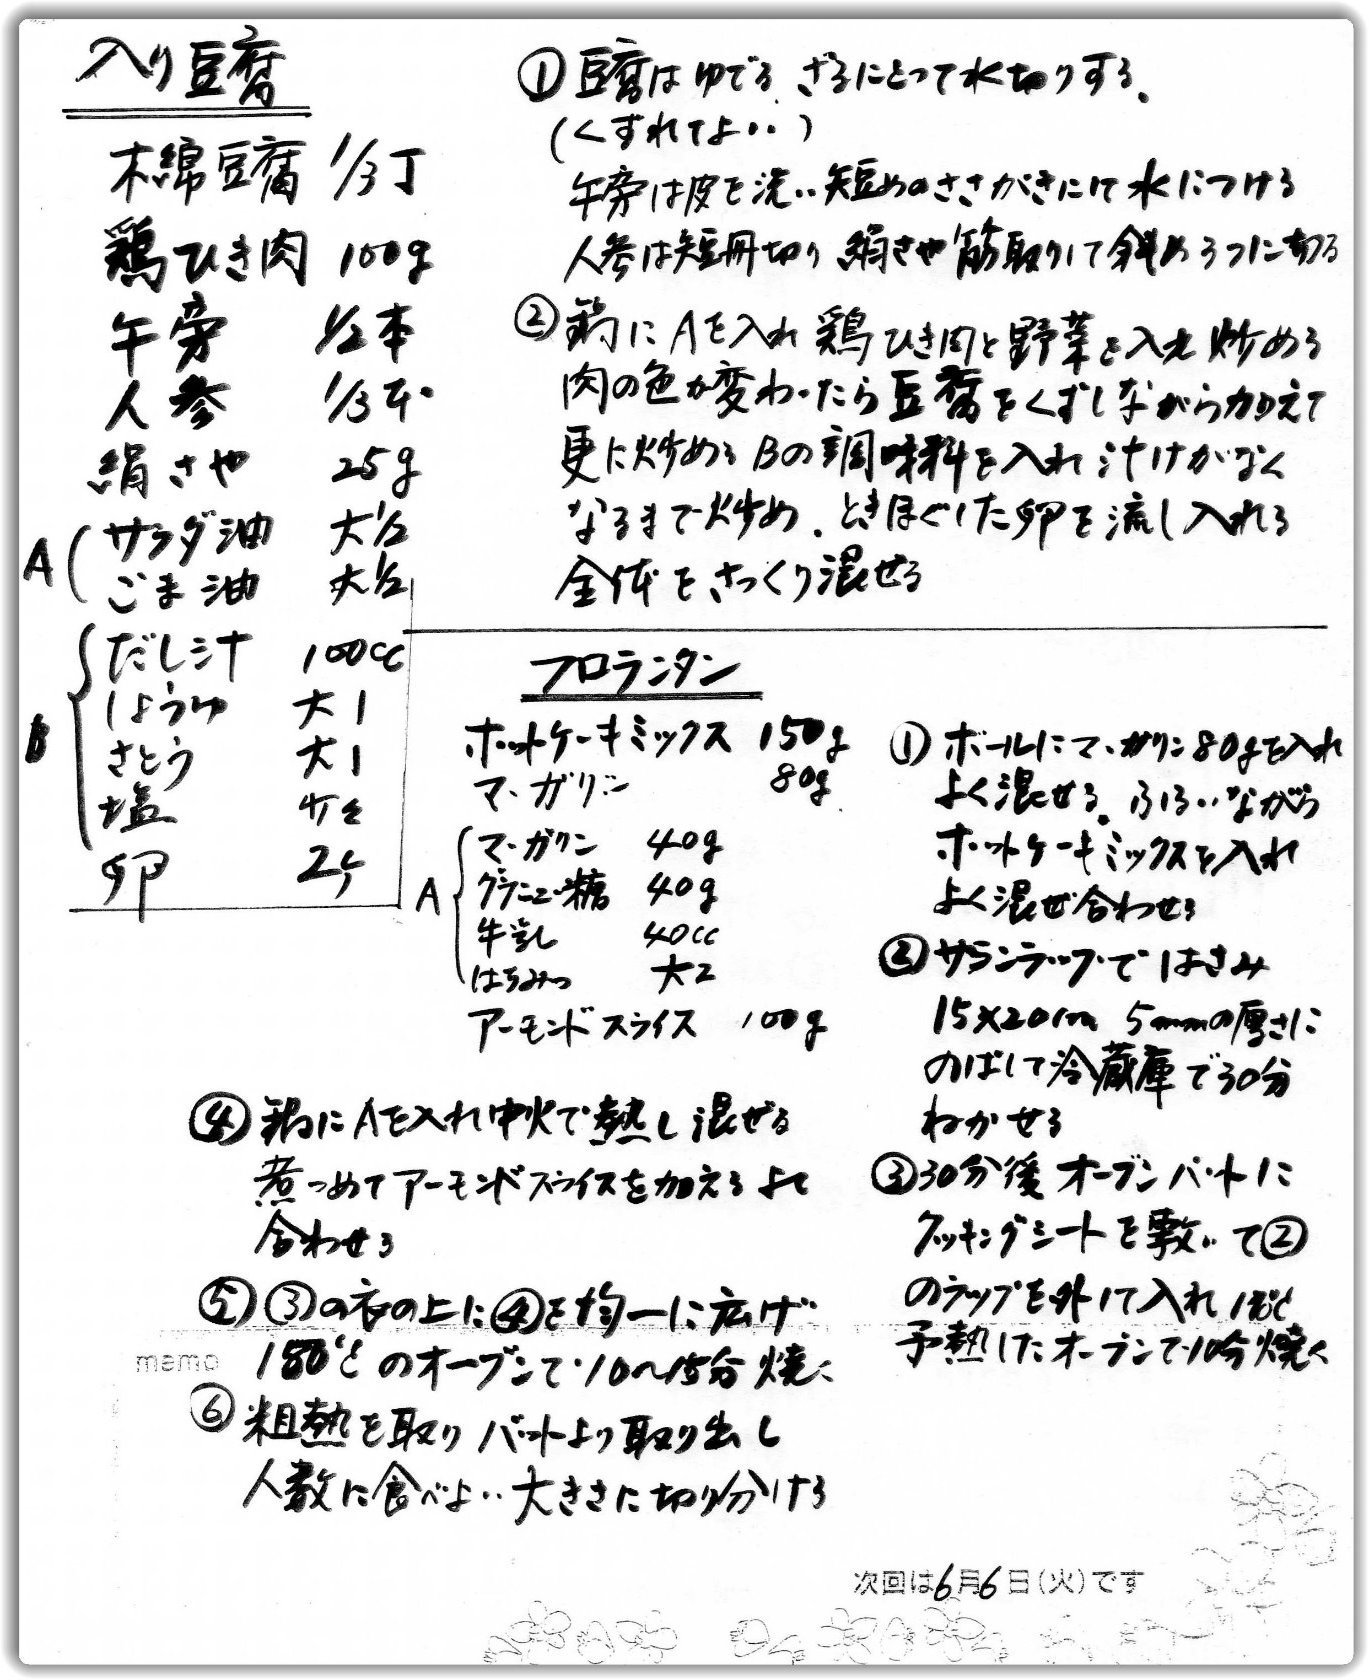 入り豆腐
木綿豆腐 1/3丁
鶏ひき肉 100g
午旁 1/2本
人参 1/3本
絹さや 25g
A サラダ油 大1/2
ごま油 大1/2
B だし汁 100cc
しょうゆ 大1
さとう 大1
塩 少々
卵 2ケ
① 豆腐はゆでる ざるにとって水切りする。
(くずれてよい)
午旁は皮を洗い短めのささがきにして水につける
人参は短冊切り 絹さや筋取りして斜め3つに切る
② 鍋にAを入れ鶏ひき肉と野菜を入れ炒める
肉の色が変わったら豆腐をくずしながら加えて
更に炒める Bの調味料を入れ汁けがなく
なるまで炒め、ときほぐした卵を流し入れる
全体をさっくり混ぜる
フロランタン
ホットケーキミックス 150g
マーガリン 80g
A マーガリン 40g
グラニュー糖 40g
牛乳 40cc
はちみつ 大2
アーモンドスライス 100g
① ボールにマーガリン80gを入れ
よく混ぜる。ふるいながら
ホットケーキミックスを入れ
よく混ぜ合わせる
② サランラップではさみ
15×20cm 5mmの厚さに
のばして冷蔵庫で30分
ねかせる
③ 30分後オーブンバットに
クッキングシートを敷いて②
のラップを外して入れ 180℃
予熱したオーブンで10分焼く
④ 鍋にAを入れ中火で熱し混ぜる
煮つめてアーモンドスライスを加えるよく
合わせる
⑤ ③の衣の上に④を均一に広げ
180℃のオーブンで10〜15分焼く
memo
⑥ 粗熱を取りバットより取り出し
人数に食べよい大きさに切り分ける
次回は6月6日(火)です